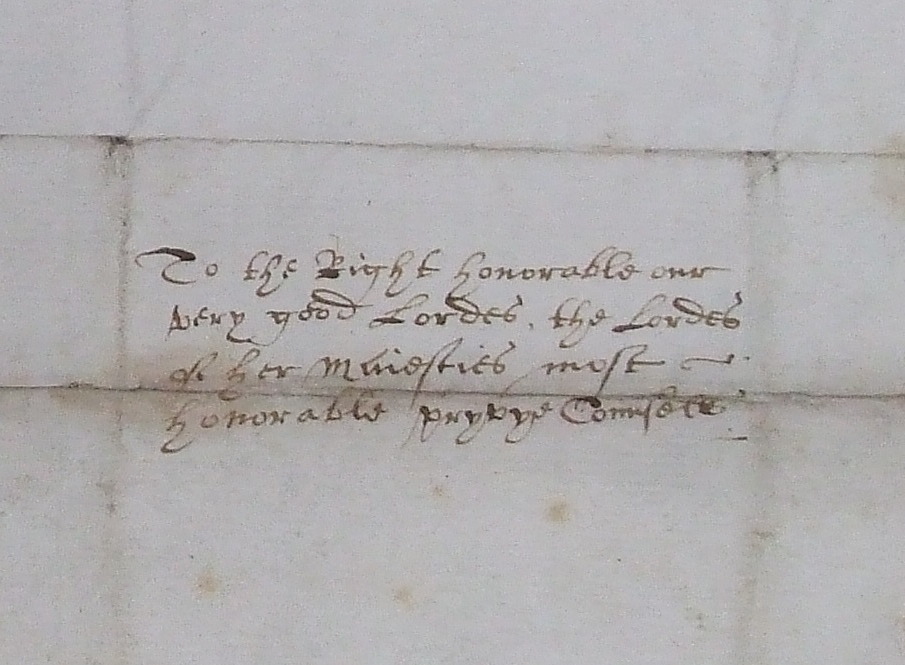 To the Right honorable our
very good Lordes, the Lordes
of her Maiesties most
honorable pryvye Counsell